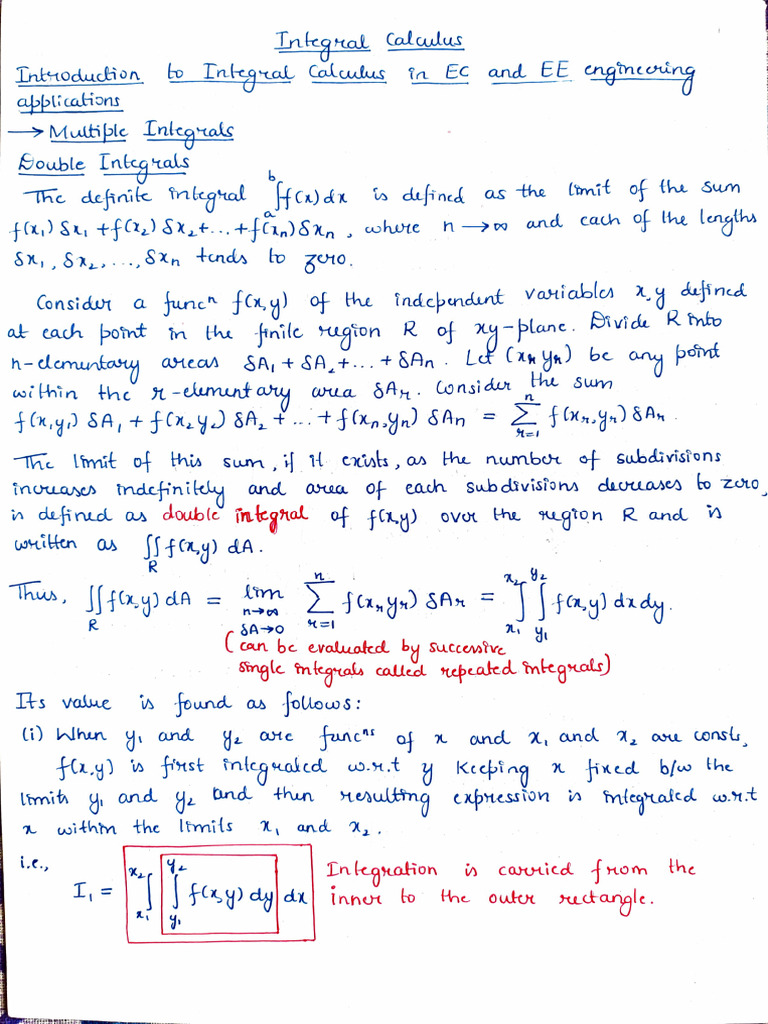 Integral Calculus
Introduction to Integral Calculus in EC and EE engineering
applications
→ Multiple Integrals
Double Integrals
The definite integral ∫_a^b f(x)dx is defined as the limit of the sum
f(x₁) δx₁ + f(x₂) δx₂ + ... + f(xₙ) δxₙ, where n → ∞ and each of the lengths
δx₁, δx₂, ..., δxₙ tends to zero.
Consider a funcⁿ f(x,y) of the independent variables x,y defined
at each point in the finite region R of xy-plane. Divide R into
n-elementary areas δA₁ + δA₂ + ... + δAₙ. Let (xᵣ yᵣ) be any point
within the r-elementary area δAᵣ. Consider the sum
f(x₁y₁) δA₁ + f(x₂y₂) δA₂ + ... + f(xₙ,yₙ) δAₙ = ∑_{r=1}^n f(xᵣ,yᵣ) δAᵣ.
The limit of this sum, if it exists, as the number of subdivisions
increases indefinitely and area of each subdivisions decreases to zero,
is defined as double integral of f(x,y) over the region R and is
written as ∬_R f(x,y) dA.
Thus, ∬_R f(x,y) dA = lim_{n→∞ δA→0} ∑_{r=1}^n f(xᵣyᵣ) δAᵣ = ∫_{x₁}^{x₂} ∫_{y₁}^{y₂} f(x,y) dxdy.
(can be evaluated by successive
single integrals called repeated integrals)
Its value is found as follows:
(i) When y₁ and y₂ are funcⁿˢ of x and x₁ and x₂ are consts,
f(x,y) is first integrated w.r.t y keeping x fixed b/w the
limits y₁ and y₂ and then resulting expression is integrated w.r.t
x within the limits x₁ and x₂.
i.e.,
I₁ = ∫_{x₁}^{x₂} ∫_{y₁}^{y₂} f(x,y) dy dx
Integration is carried from the
inner to the outer rectangle.